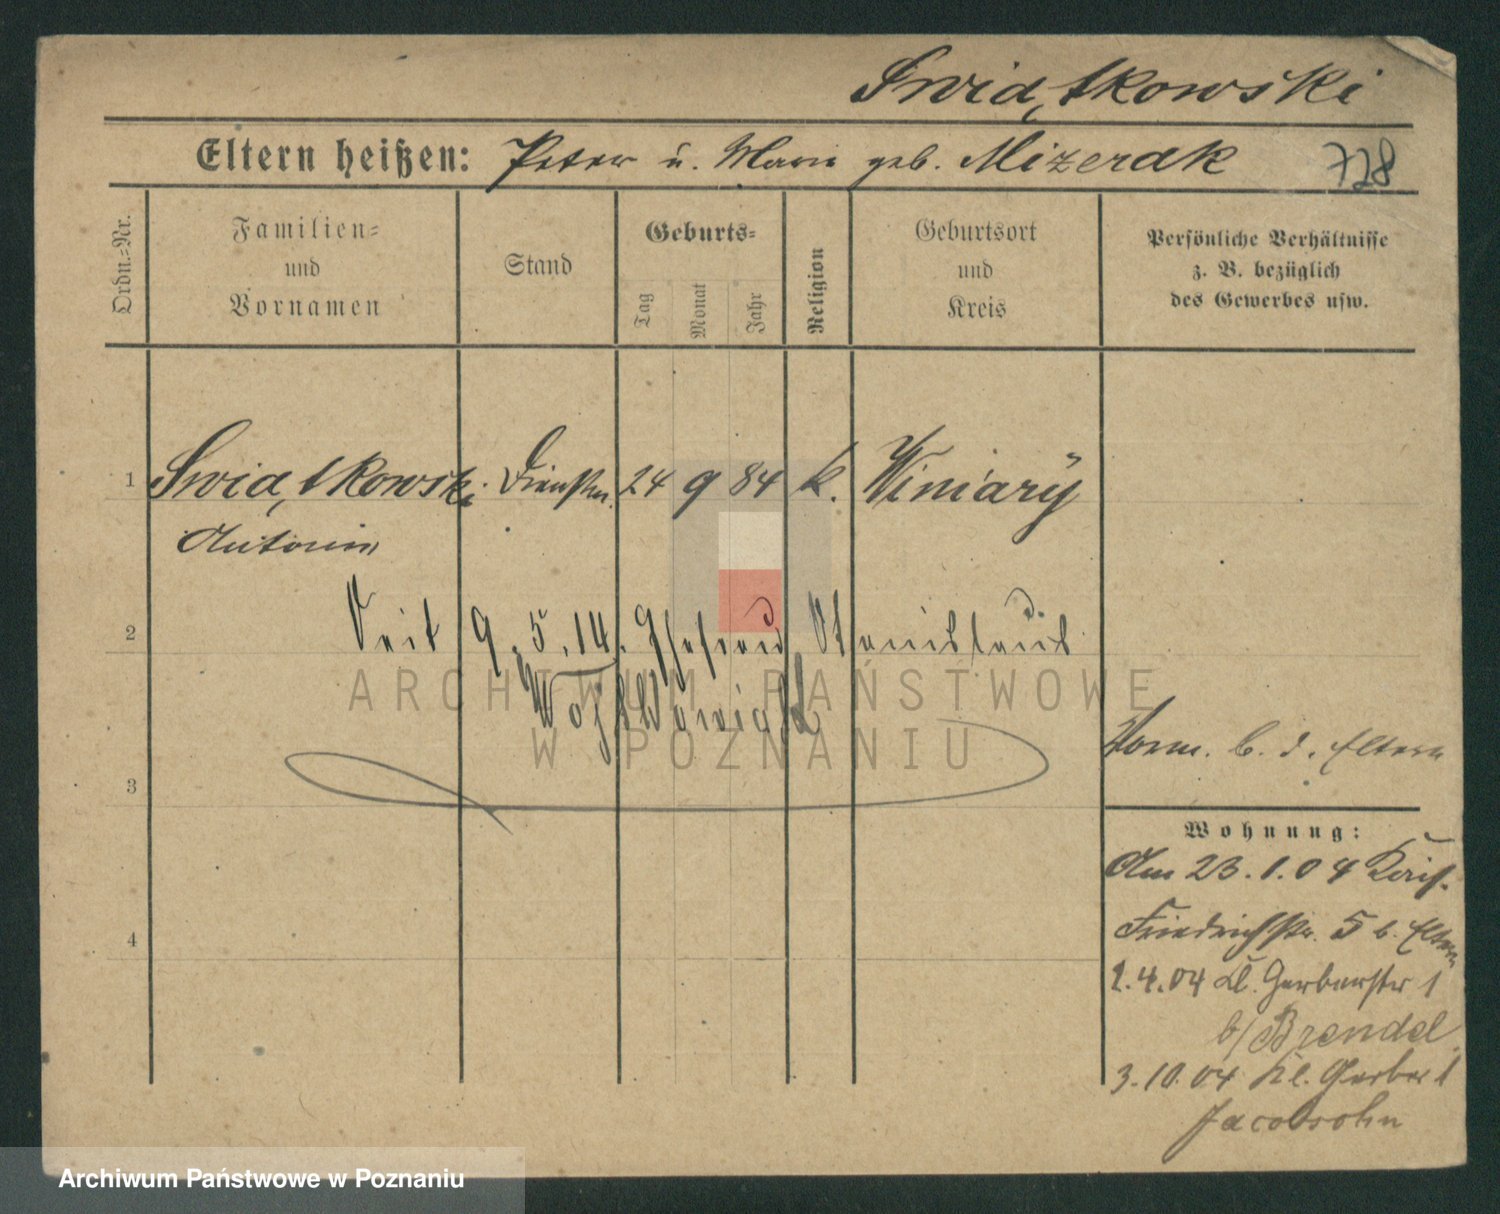 Swiątkowski
Eltern heißen: Peter u. Marie geb. Mizerak 728
Ordn.-Nr.
Familien-
und
Vornamen
Stand
Geburts-
Tag
Monat
Jahr
Religion
Geburtsort
und
Kreis
Persönliche Verhältnisse
z. B. bezüglich
des Gewerbes usw.
1 Swiątkowski Dienstm. 24 9 84 k. Winiary
Antonie
2 Seit 9.5.14. Ehefrau d. Stanislaus
ARCHIWUM PAŃSTWOWE
W POZNANIU
3
Vorm. b. d. Eltern
Wohnung:
Am 23.1.04 Kais.
Friedrichstr. 5 b. Eltern
4
1.4.04 Kl. Gerberstr 1
b/ Brendel
3.10.04 Kl. Gerber 1
Jacobsohn
Archiwum Państwowe w Poznaniu